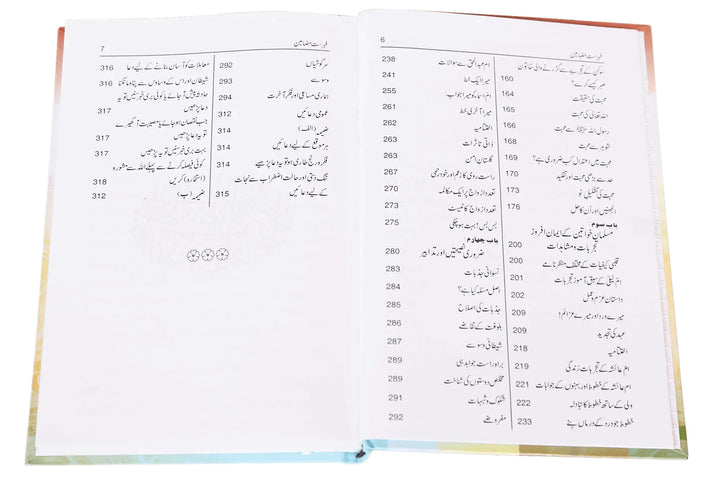 6
فہرست مضامین
سوکن کے تجربے سے گزرنے والی خاتون
صبر کیسے کرے؟ 160
محبت کی حقیقت 164
اللہ تعالیٰ کی محبت 165
رسول اللہ ﷺ سے محبت 166
شوہر سے محبت 168
محبت میں اعتدال کیوں ضروری ہے؟ 169
حد سے بڑھی محبت اور تقلید 170
محبت کی تشکیلِ نو 173
الجھنیں اور اُن کا حل 176
باب سوم
مسلمان خواتین کے ایمان افروز
تجربات و مشاہدات 200
قلبی کیفیات کے مختلف منظرنامے 200
اُمّ لیلیٰ کے سبق آموز تجربات 201
داستان عزم و عمل 202
میرے درد اور میرے عزائم! 209
عہد کی تجدید 209
اختتامیہ 218
اُمّ عائشہ کے تجربات زندگی 219
اُمّ عائشہ کے خطوط اور بہنوں کے جوابات 221
ولی کے ساتھ خطوط کا تبادلہ 222
خطوط جو درد کے درماں بنے 233
اُمّ عبدالحق سے سوالات 238
میرا ایک خط 241
اُمّ اسماء کو میرا جواب 255
میرا آخری خط 258
اختتامیہ 262
ذاتی تاثرات 263
گلستان امن 263
راست روی کا زعم اور خود رحمی 267
تعدد ازواج پر ایک مکالمہ 268
تعدد ازواج کا ٹیسٹ 272
بس بس! بہت ہو چکی 275
باب چہارم
ضروری نصیحتیں اور تدابیر 280
نسوانی جذبات 281
اصل مسئلہ کیا ہے؟ 282
جذبات کی اصلاح 285
بلوغت کے تقاضے 286
شیطانی وسوسے 287
براہ راست جوابدہی 289
مخلص دوستوں کی شناخت 289
شکوک و شبہات 291
مفروضے 292
7
فہرست مضامین
سرگوشیاں 292
وسوسے 293
ہماری مساعی اور فکر آخرت 294
عمومی دعائیں 312
ضمیمہ (الف) 314
ہر موقع کے لیے دعائیں 314
فکر و رنج طاری ہو تو یہ دعا پڑھیے 314
تنگ دستی اور حالت اضطراب سے نجات
کے لیے دعائیں 315
معاملات کو آسان بنانے کے لیے دعا 316
شیطان اور اس کے وساوس سے پناہ مانگنا 316
حادثہ پیش آجائے یا کوئی بری خبر سنیں تو یہ
دعا پڑھیں 317
جب نقصان ہو جائے یا مصیبت آ گھیرے
تو یہ دعا پڑھیں 317
بہت بری خبر سنیں تو یہ پڑھیں 317
کوئی فیصلہ کرنے سے پہلے اللہ سے مشورہ
(استخارہ) کریں 318
ضمیمہ (ب) 312